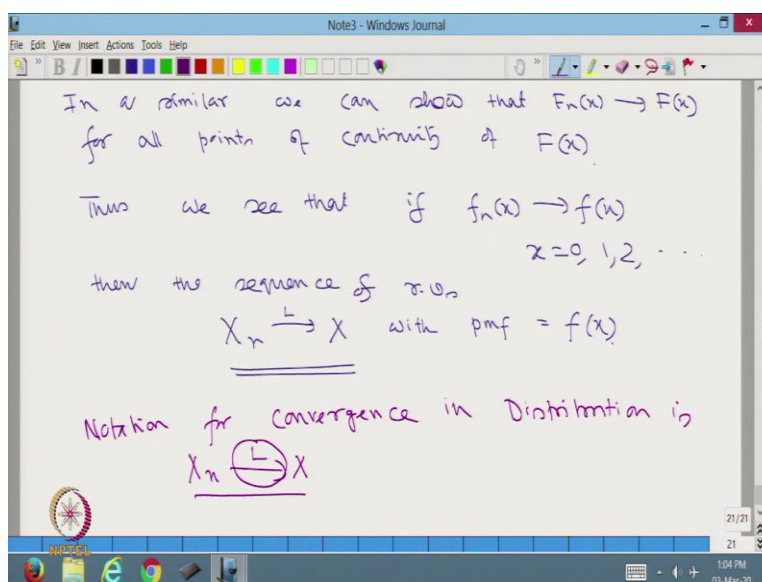 Note3 - Windows Journal
File Edit View Insert Actions Tools Help
B I
In a similar we can show that Fn(x) → F(x)
for all points of continuity of F(x)
Thus we see that if fn(x) → f(x)
x = 0, 1, 2, ...
then the sequence of r.vs
Xn —L→ X with pmf = f(x)
Notation for convergence in Distribution is
Xn —L→ X
NPTEL
21/21
21
1:04 PM
03-Mar-20